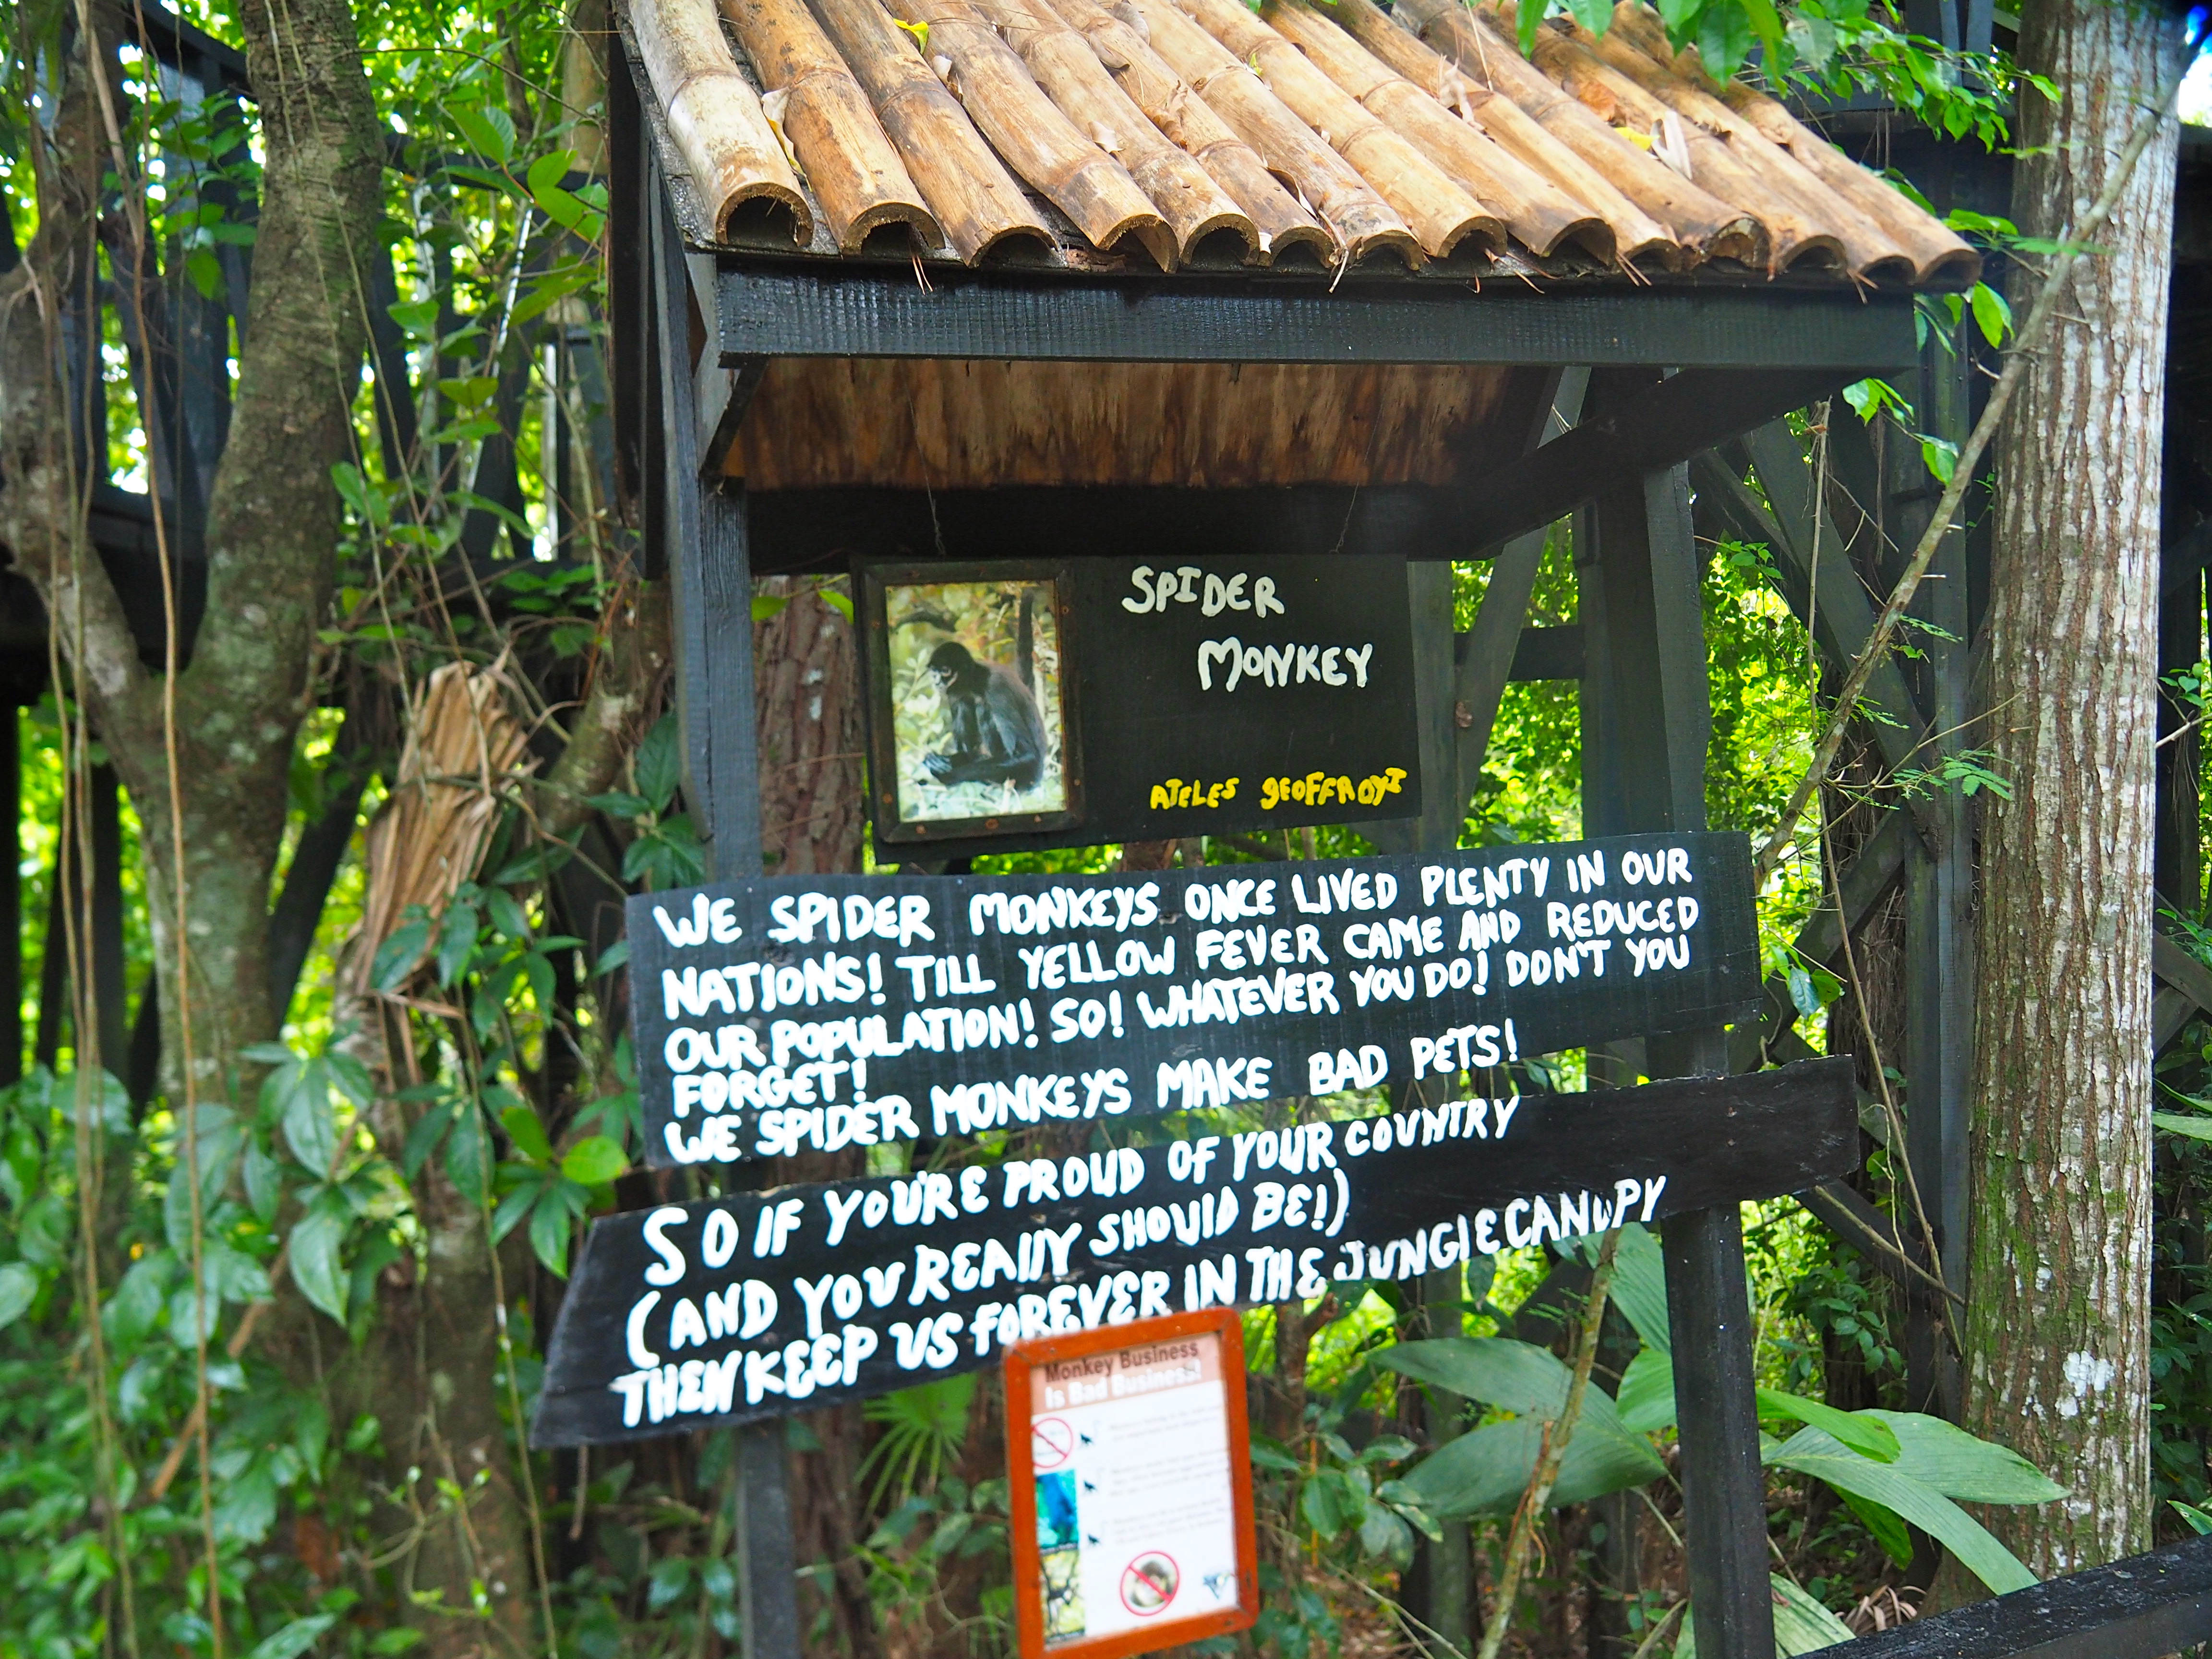 SPIDER
MONKEY
ATELES GEOFFROYI
WE SPIDER MONKEYS ONCE LIVED PLENTY IN OUR
NATIONS! TILL YELLOW FEVER CAME AND REDUCED
OUR POPULATION! SO! WHATEVER YOU DO! DON'T YOU
FORGET!
WE SPIDER MONKEYS MAKE BAD PETS!
SO IF YOU'RE PROUD OF YOUR COUNTRY
(AND YOU REALLY SHOULD BE!)
THEN KEEP US FOREVER IN THE JUNGLE CANOPY
Monkey Business
Is Bad Business!